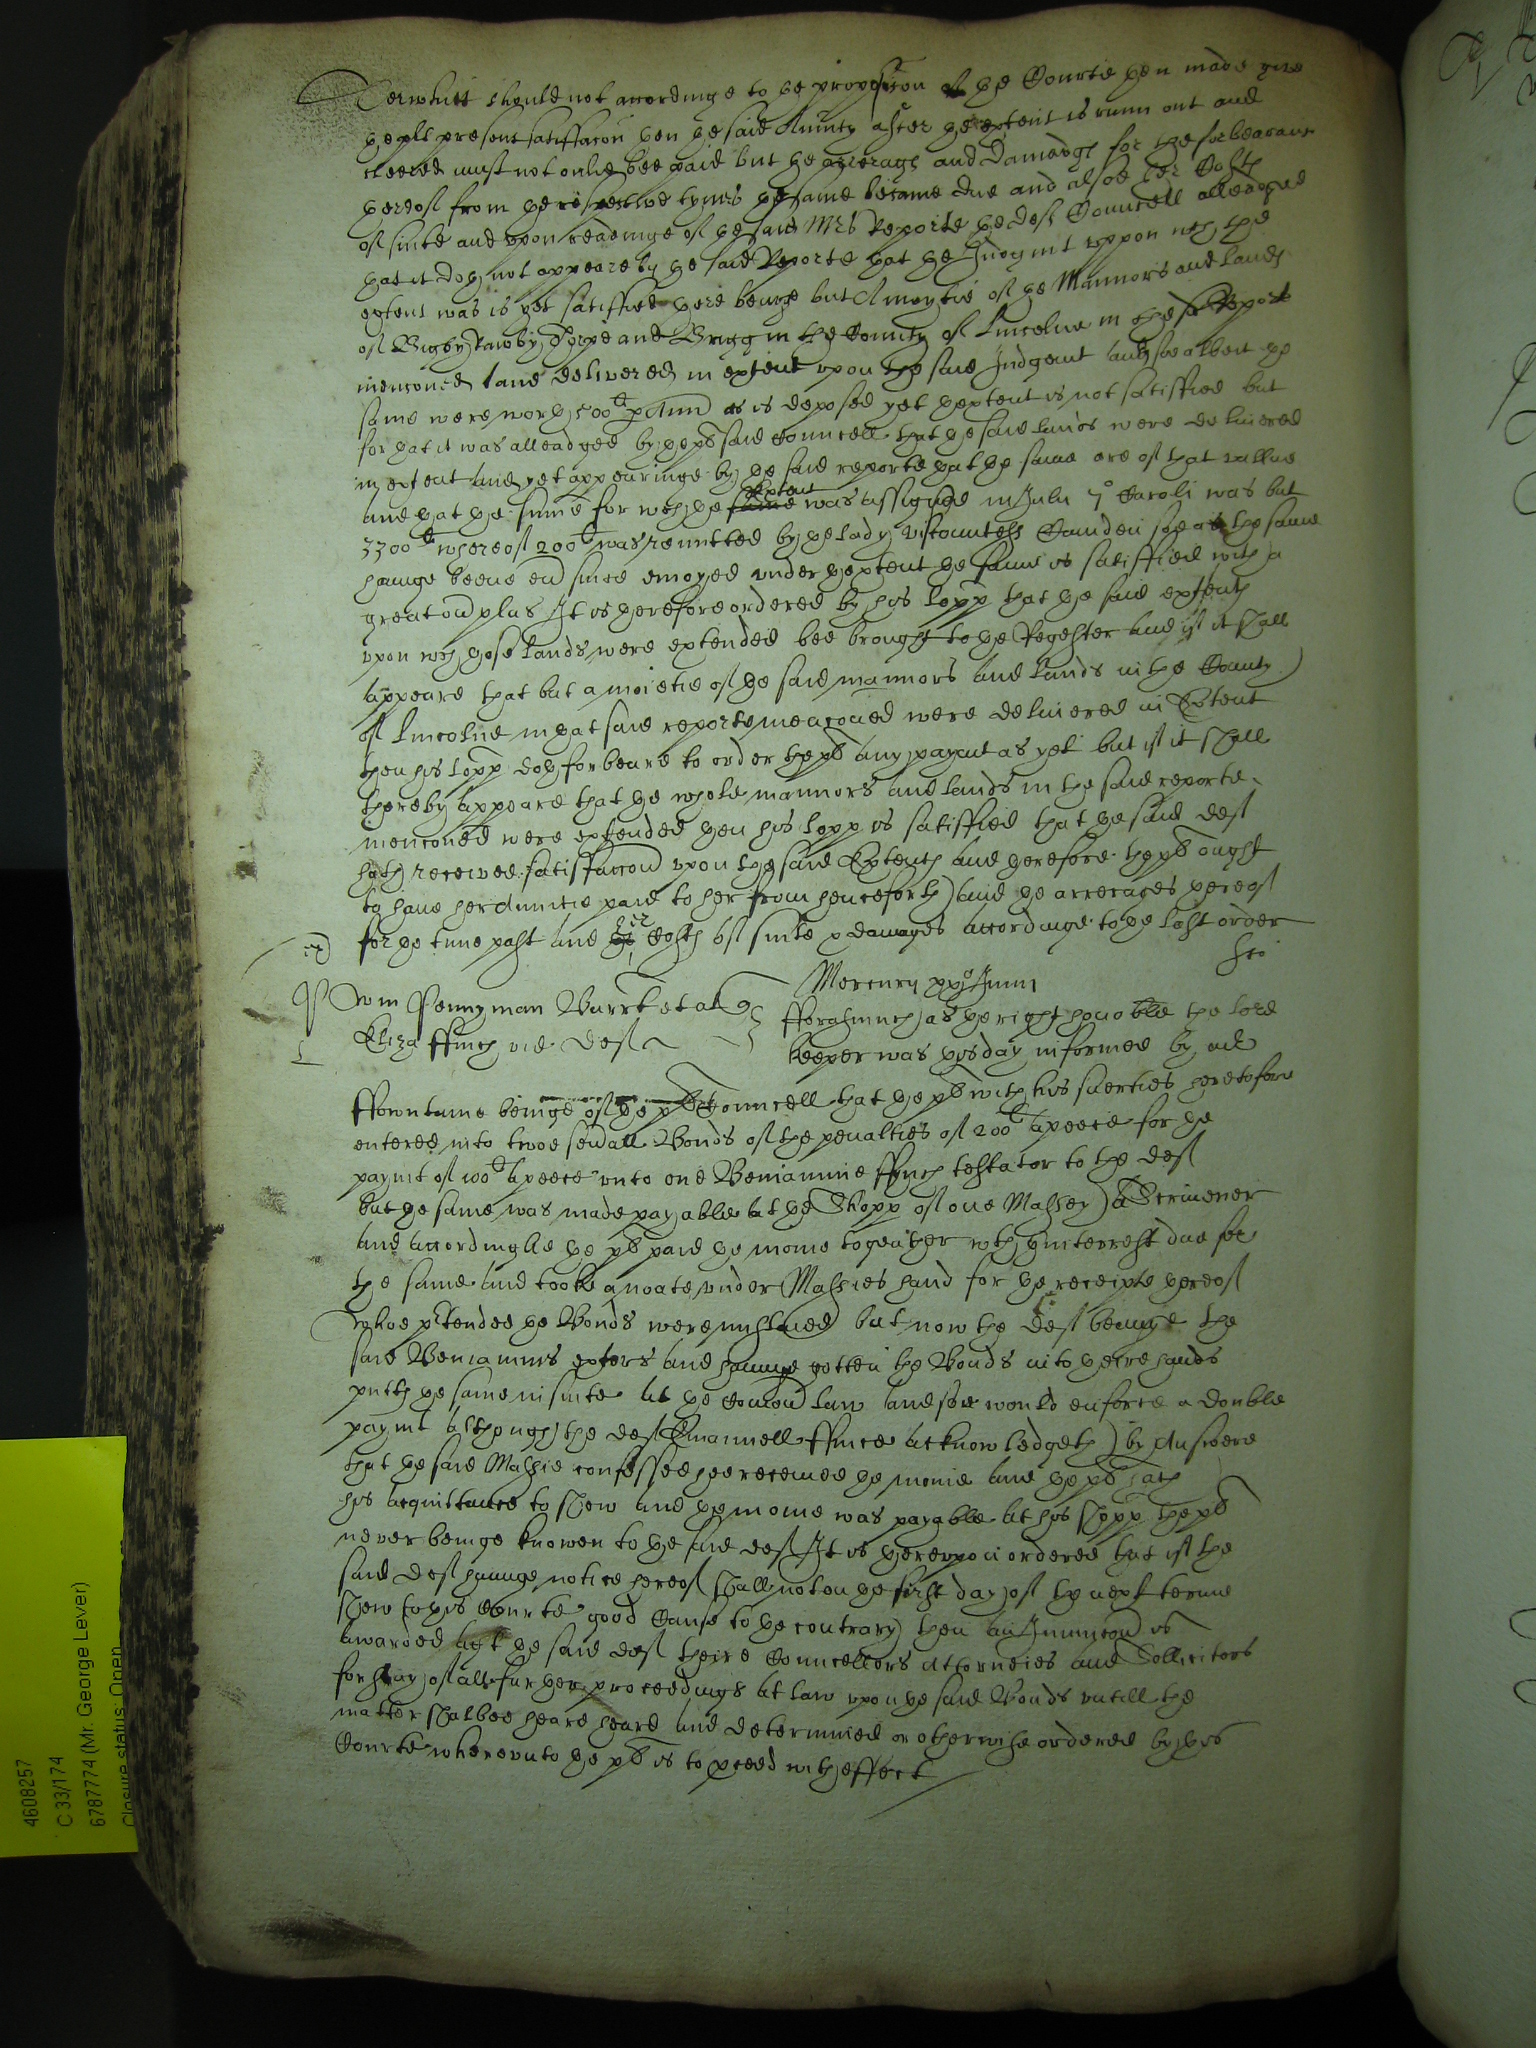 Terwhitt should not accordinge to ye proposicon of ye Courte then made give
ye plt present satisfaccon then ye said Anuity after ye extent is runn out and
cleered must not onlie bee paid but ye arrerages and Damadges for the forbearance
thereof from ye respective tymes ye same became due and alsoe her Costs
of suite and upon readinge of ye said Mrs Reporte ye deft Councell alleadged
that it doth not appeare by ye said Reporte that ye Judgmt uppon wch the
extent was is yet satisfied there beinge but A moytie of ye Mannors and lands
of Bigby Kawby Thorpe and Brigg in the County of Lincolne in the sd Reporte
menconed land delivered in extent upon the said Judgemt and soe albeit ye
same were worth 500li p Ann as is deposed yet ye extent is not satisfied but
for that it was alleadged by ye pls said Councell that ye said lands were delivered
in extent and yet appearinge by ye said reporte that ye same are of that vallue
and that ye sume for wch ye extent was assigned in July 7o Caroli was but
3300li whereof 200li was remitted by ye lady Viscountess Camden soe as the same
haveinge beene ever since enioyed under ye extent ye same is satisfied with a
great overplus It is therefore ordered by his Lopp that ye said extents
upon wch those lands were extended bee brought to ye Register and if it shall
appeare that but a moietie of ye said mannors and lands in the County
of Lincolne in that said reporte menconed were delivered in Extent
then his Lopp doth forbeare to order the pl any paymt as yet but if it shall
thereby appeare that ye whole mannors and lands in the said reporte
menconed were extended then his Lopp is satisfied that ye said deft
hath received satisfaccon upon the said Extents and therefore the pl ought
to have her Anuitie paid to her from henceforth and ye arrerages thereof
for ye time past and her Costs of suite & damages accordinge to ye last order

Mercurii xxo Junii
Wm Pennyman Barrt et al
Eliza ffinch vid deft
fforasmuch as ye right honoble the lord
keeper was this day informed by mr
ffowntaine beinge of ye pls Councell that ye pl with his suerties heretofore
entered into twoe severall Bonds of the penalties of 200li apeece for ye
paymt of 100li apeece unto one Beniamine ffinch testator to the deft
but ye same was made payable at ye Shopp of one Massey a Scrivener
and accordinglie ye pl paid ye monie togeather wth ye interrest due for
the same and tooke a noate under Massies hand for ye receipte thereof
whoe ptended ye Bonds were mislaied but now the deft beinge the
said Beniamins extors and haveinge gotten the Bonds into theire hands
putts ye same in suite at ye Comon law and soe would enforce a double
paymt although the deft Emanuell ffince acknowledgeth by Answere
that ye said Massie confessed hee received ye monie and ye pl hath
his acquittance to shew and ye monie was payable at his shopp the pl
never beinge knowen to ye said deft It is thereupon ordered that if the
said deft haveinge notice hereof shall not on ye first day of the next terme
shew to this Courte good Cause to ye contrary then an Iniunccon is
awarded agt ye said deft theire Councellors Attorneies and Sollicitors
for stay of all further proceedings at law upon ye said Bonds untill the
matter shalbee heard heard and determined or otherwise ordered by this
Courte whereunto ye pl is to pceed with effect
4608257
C 33/174
6787774 (Mr. George Lever)
Closure status: Open